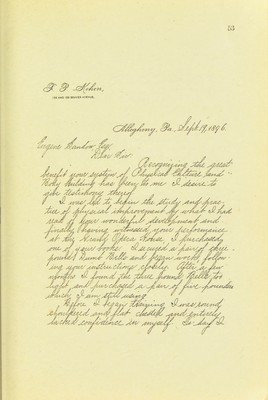 53
F. P. Kohen,
Allegheny, Pa., Sept. 19, 1896.
Eugene Sandow, Esq.
Dear Sir
Recognizing the great
benefit your system of Physical Culture and
Body Building has been to me I desire to
give testimony thereof.
I was led to begin the study and prac-
tice of physical improvement by what I had
read of your wonderful development and
finally having witnessed your performance
at the Opera House, I purchased
one of your books. I secured a pair of three
pound Dumb Bells and began work, follow-
ing your instructions closely. After a few
months I found the three pound Bells too
light and purchased a pair of five pounders
which I am still using.
Before I began training I was round
shouldered and flat chested and entirely
lacked confidence in myself. To-day I